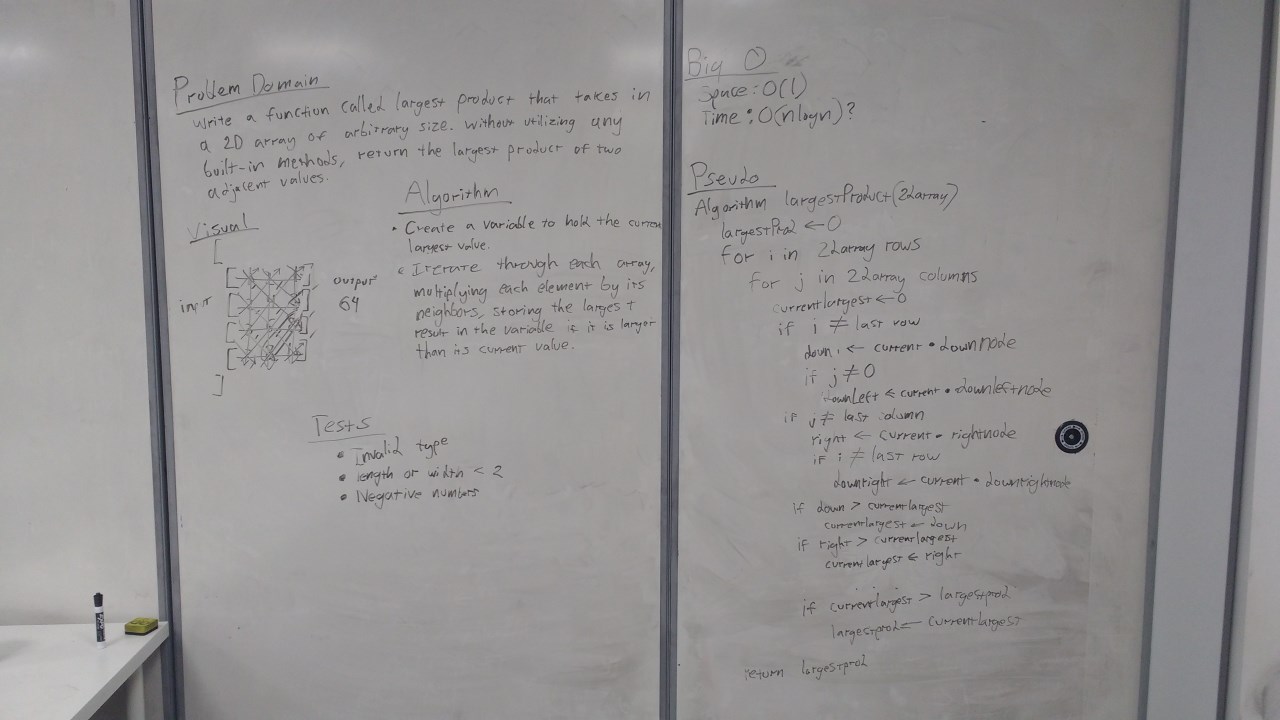 Problem Domain
Write a function called largest product that takes in
a 2D array of arbitrary size. Without utilizing any
built-in methods, return the largest product of two
adjacent values.
Visual
[
input
]
output
64
Algorithm
• Create a variable to hold the current
largest value.
• Iterate through each array,
multiplying each element by its
neighbors, storing the largest
result in the variable if it is larger
than its current value.
Tests
• Invalid type
• length or width < 2
• Negative numbers
Big O
Space: O(1)
Time: O(nlogn)?
Pseudo
Algorithm largestProduct(2darray)
largestProd ← 0
for i in 2darray rows
for j in 2darray columns
currentlargest ← 0
if i ≠ last row
down ← current • downnode
if j ≠ 0
downLeft ← current • downleftnode
if j ≠ last column
right ← current • rightnode
if i ≠ last row
downright ← current • downrightnode
if down > currentlargest
currentlargest ← down
if right > currentlargest
currentlargest ← right
if currentlargest > largestprod
largestprod ← currentlargest
return largestprod